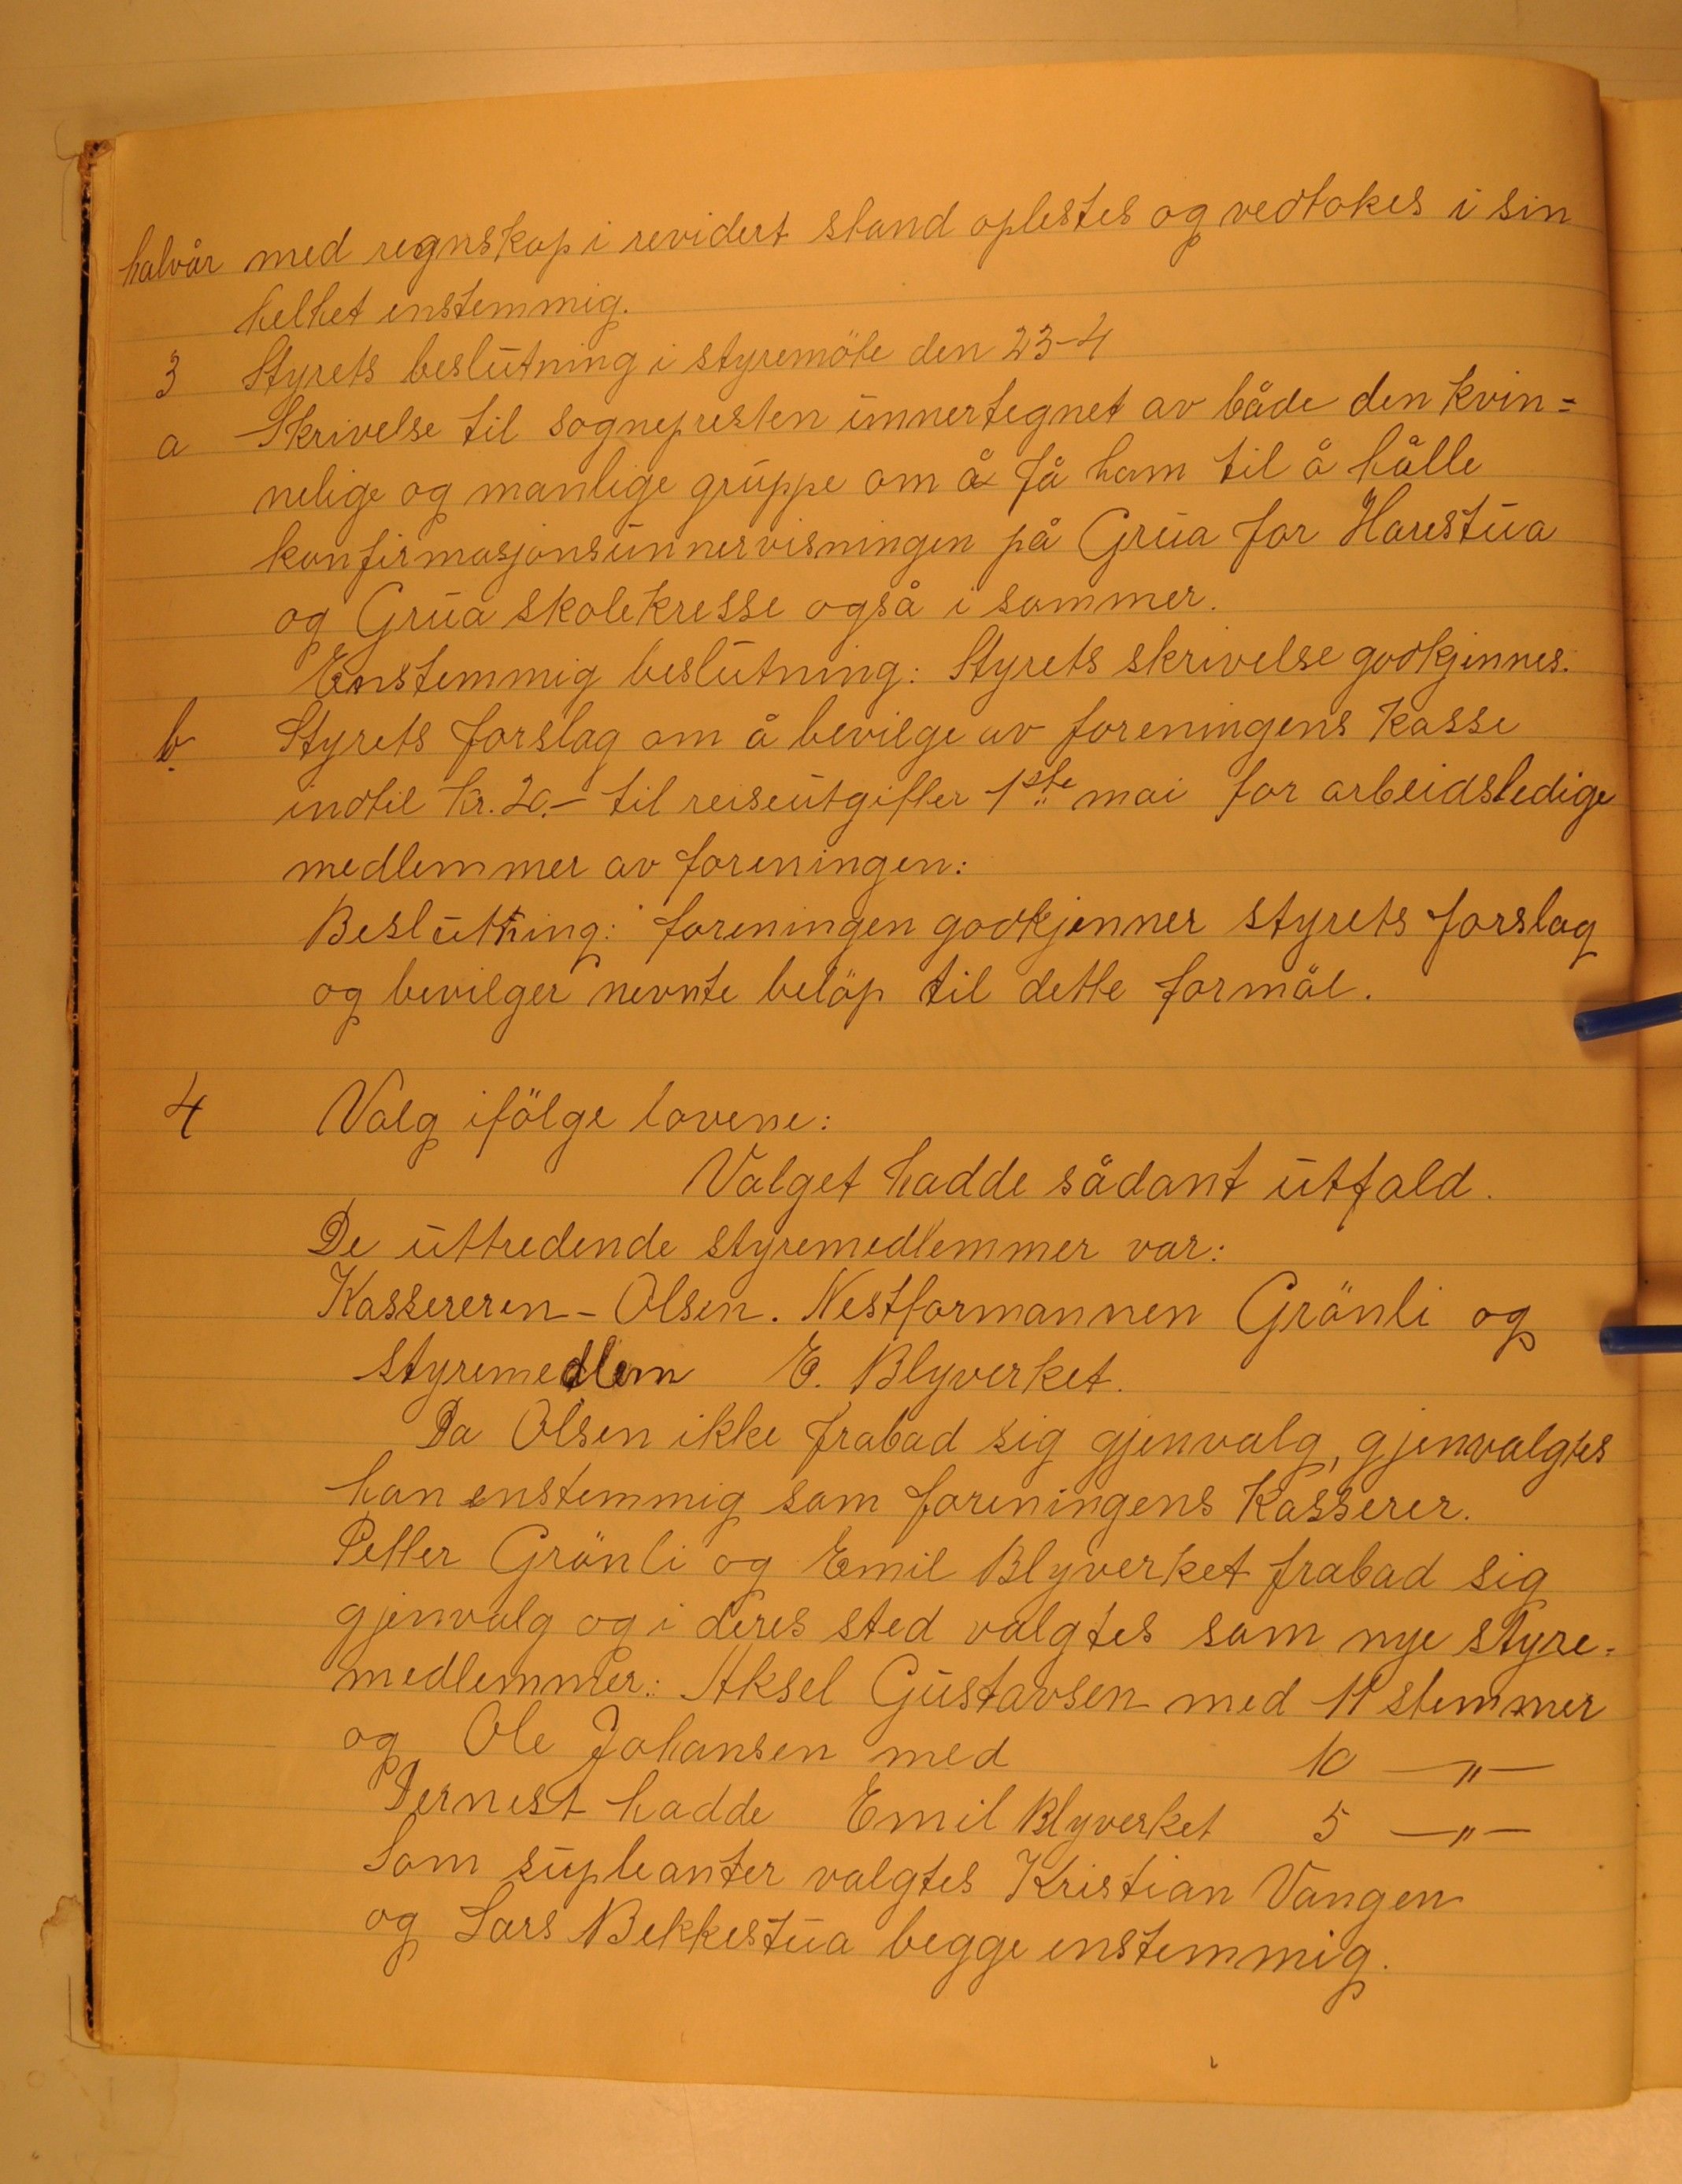 halvår med regnskap i revidert stand oplestes og vedtokes i sin
helhet enstemmig.
3 Styrets beslutning i styremöte den 23-4
a Skrivelse til sognepresten unnertegnet av både den kvin=
nelige og manlige gruppe om å få ham til å hålle
konfirmasjonsunnervisningen på Grua for Harestua
og Grua skolekresse også i sommer.
Enstemmig beslutning: Styrets skrivelse godkjennes.
b Styrets forslag om å bevilge av foreningens kasse
indtil kr. 20.- til reiseutgifter 1ste mai for arbeidsledige
medlemmer av foreningen:
Beslutning: foreningen godkjenner styrets forslag
og bevilger nevnte belöp til dette formål.
4 Valg ifölge lovene:
Valget hadde sådant utfald.
De uttredende styremedlemmer var:
Kassereren - Olsen. Nestformannen Grönli og
styremedlem E. Blyverket.
Da Olsen ikke frabad sig gjenvalg, gjenvalgtes
han enstemmig som foreningens kasserer.
Petter Grönli og Emil Blyverket frabad sig
gjenvalg og i deres sted valgtes som nye styre=
medlemmer: Aksel Gustavsen med 11 stemmer
og Ole Johansen med 10 —"—
Dernest hadde Emil Blyverket 5 —"—
Som supleanter valgtes Kristian Vangen
og Lars Bekkestua begge enstemmig.